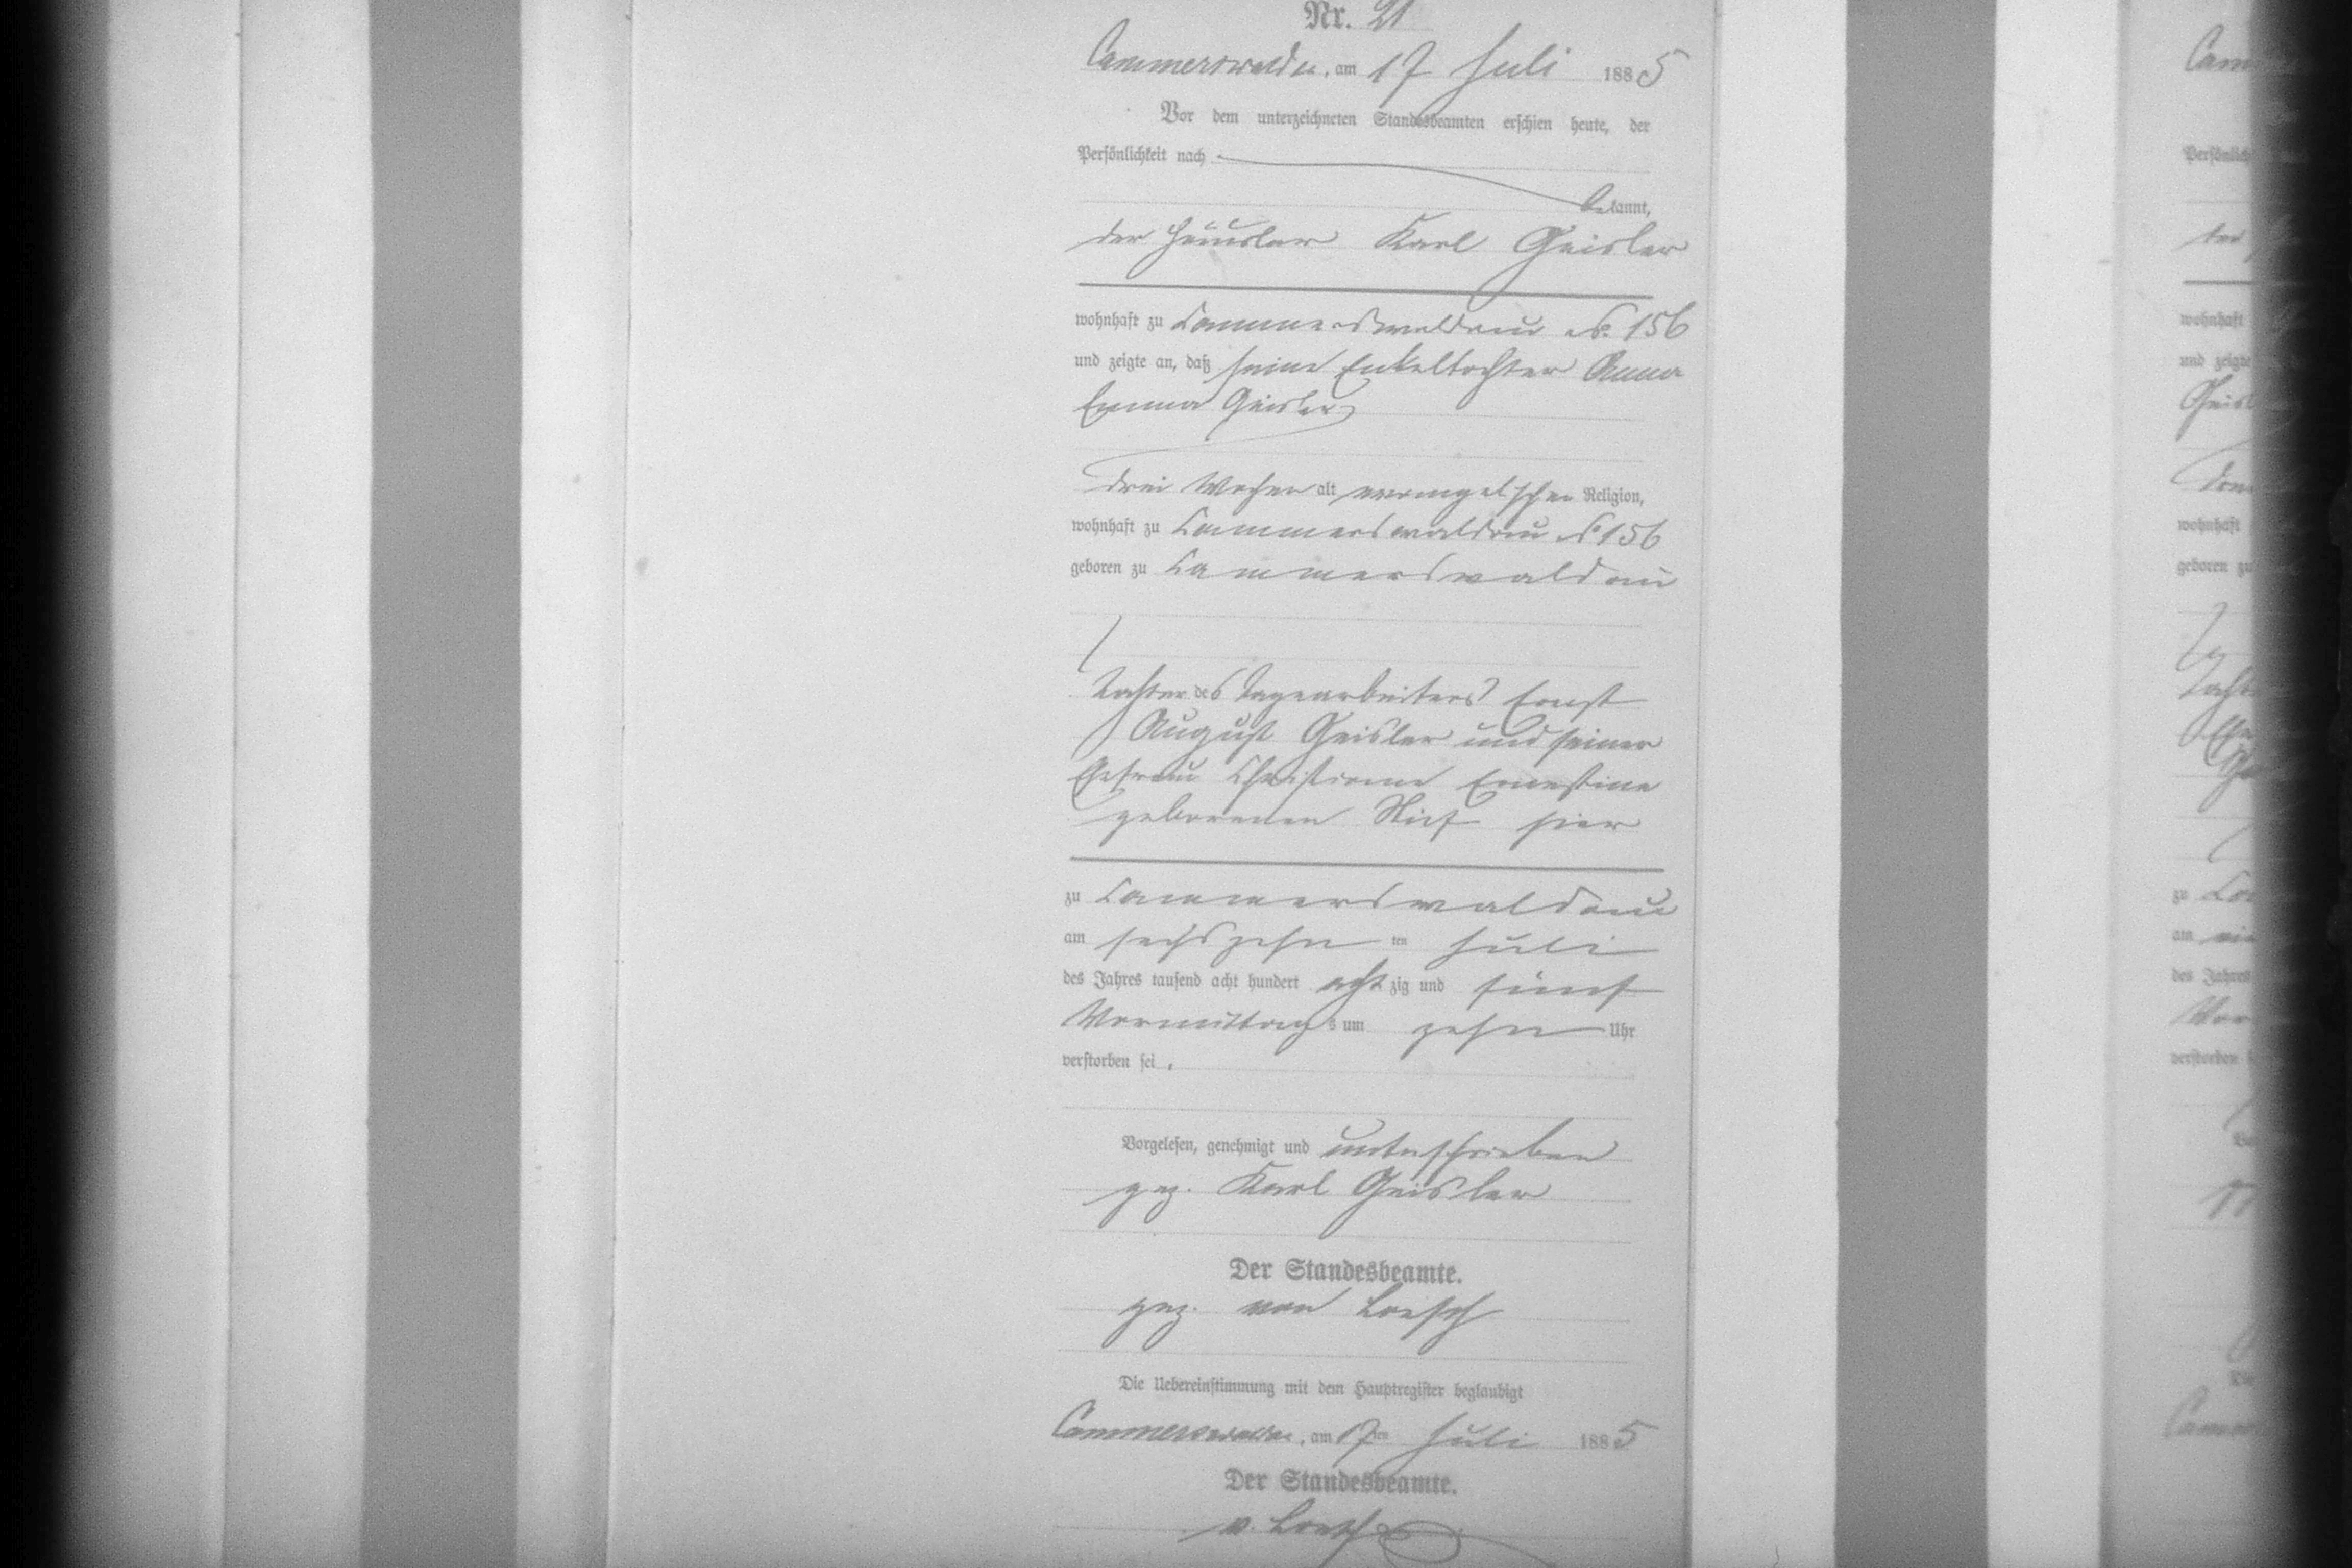 Nr. 21
Cammerswaldau, am 17 Juli 1885
Vor dem unterzeichneten Standesbeamten erschien heute, der
Persönlichkeit nach
bekannt,
der Häusler Karl Geisler
wohnhaft zu Cammerswaldau No. 156
und zeigte an, daß seine Enkeltochter Anna
Emma Geisler
drei Wochen alt evangelischer Religion,
wohnhaft zu Cammerswaldau No 156
geboren zu Cammerswaldau
Tochter des Tagearbeiters Ernst
August Geisler und seiner
Ehefrau Christiane Ernestine
geborenen hier
zu Cammerswaldau
am sechszehn ten Juli
des Jahres tausend acht hundert achtzig und fünf
Vormittags um zehn Uhr
verstorben sei.
Vorgelesen, genehmigt und unterschrieben
gez. Karl Geisler
Der Standesbeamte.
gez. von Loesch
Die Uebereinstimmung mit dem Hauptregister beglaubigt
Cammerswaldau, am 17ten Juli 1885
Der Standesbeamte.
v. Loesch
wohnhaft
und zeigte
wohnhaft
geboren zu
zu
am
des Jahres
verstorben